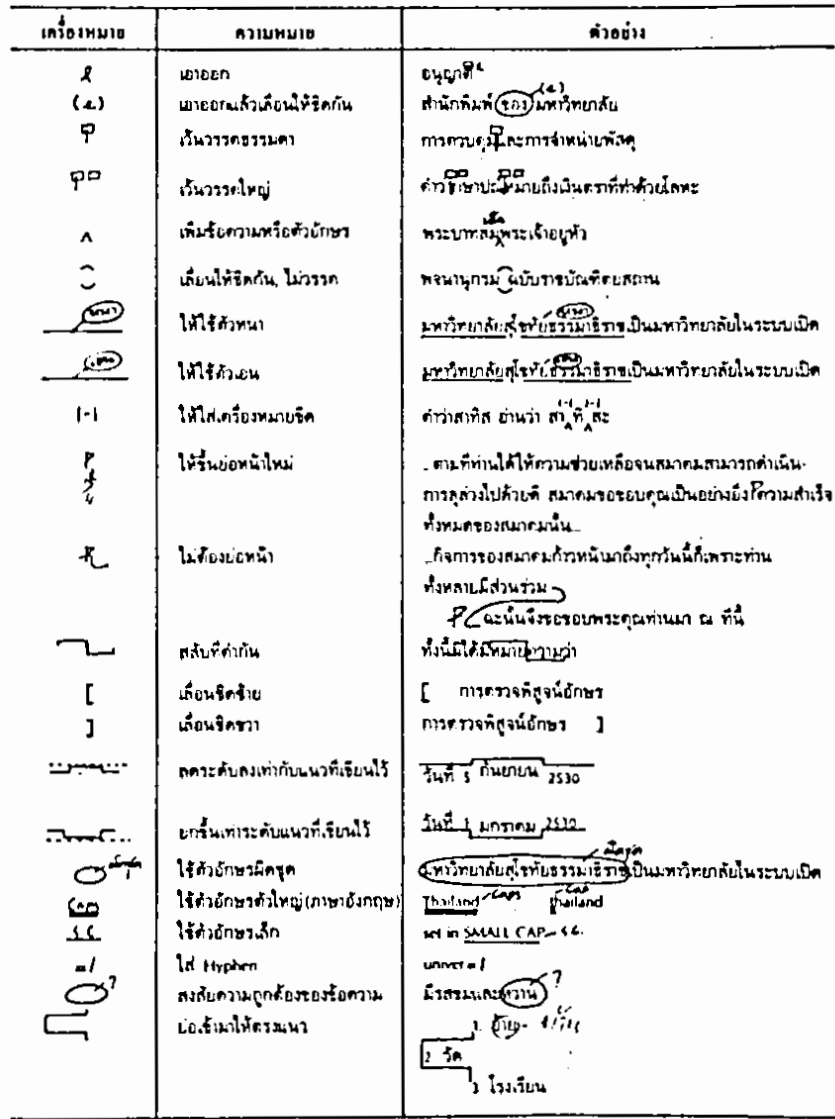 เครื่องหมาย ความหมาย ตัวอย่าง
เอาออก อนุญาติ
(๔) เอาออกแล้วเลื่อนให้ชิดกัน สำนักพิมพ์ ของ มหาวิทยาลัย
เว้นวรรคธรรมดา การควบคุมและการจำหน่ายพัสดุ
เว้นวรรคใหญ่ คำว่ากษาปณ์หมายถึงเงินตราที่ทำด้วยโลหะ
เพิ่มข้อความหรือตัวอักษร พระบาทสมพระเจ้าอยู่หัว
เลื่อนให้ชิดกัน, ไม่วรรค พจนานุกรม ฉบับราชบัณฑิตยสถาน
หนา ให้ใช้ตัวหนา มหาวิทยาลัยสุโขทัยธรรมาธิราชเป็นมหาวิทยาลัยในระบบเปิด
เอน ให้ใช้ตัวเอน มหาวิทยาลัยสุโขทัยธรรมาธิราชเป็นมหาวิทยาลัยในระบบเปิด
|-| ให้ใส่เครื่องหมายขีด คำว่าสาทิส อ่านว่า สา ทิ สะ
ให้ขึ้นย่อหน้าใหม่ ..ตามที่ท่านได้ให้ความช่วยเหลือจนสมาคมสามารถดำเนิน-
การลุล่วงไปด้วยดี สมาคมขอขอบคุณเป็นอย่างยิ่ง ความสำเร็จ
ทั้งหมดของสมาคมนั้น..
ไม่ต้องย่อหน้า ..กิจการของสมาคมก้าวหน้ามาถึงทุกวันนี้ก็เพราะท่าน
ทั้งหลายมีส่วนร่วม
ฉะนั้นจึงขอขอบพระคุณท่านมา ณ ที่นี้
สลับที่คำกัน ทั้งนี้มิได้มีหมายความว่า
[ เลื่อนชิดซ้าย [ การตรวจพิสูจน์อักษร
] เลื่อนชิดขวา การตรวจพิสูจน์อักษร ]
ลดระดับลงเท่ากับแนวที่เขียนไว้ วันที่ 5 กันยายน 2530
ยกขึ้นเท่าระดับแนวที่เขียนไว้ วันที่ 1 มกราคม 2530
ใช้ตัวอักษรผิดชุด มหาวิทยาลัยสุโขทัยธรรมาธิราชเป็นมหาวิทยาลัยในระบบเปิด
Cap ใช้ตัวอักษรตัวใหญ่(ภาษาอังกฤษ) Thailand Caps thailand Cap
s c ใช้ตัวอักษรเล็ก set in SMALL CAP s c.
=/ ใส่ Hyphen =/
? สงสัยความถูกต้องของข้อความ มีรสขมและหวาน ?
ย่อเข้ามาให้ตรงแนว 1.
2 วัด
3 โรงเรียน